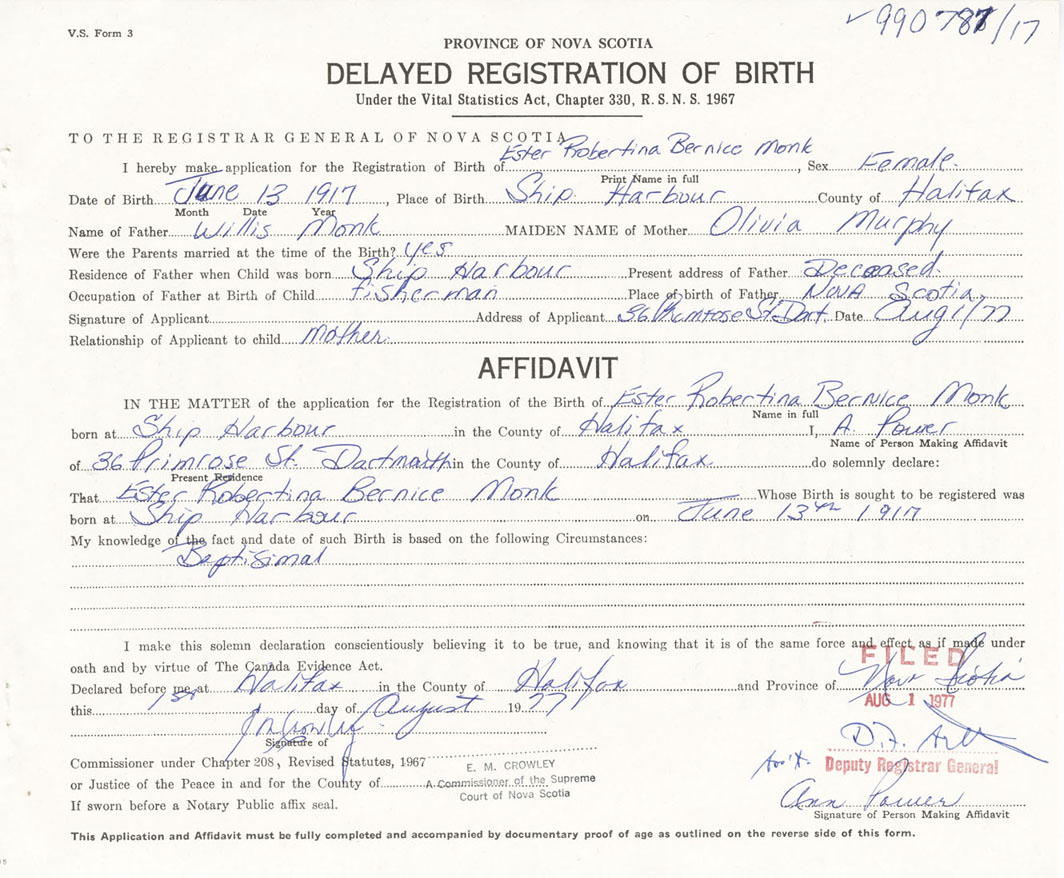 V.S. Form 3
990787/17
PROVINCE OF NOVA SCOTIA
DELAYED REGISTRATION OF BIRTH
Under the Vital Statistics Act, Chapter 330, R.S.N.S. 1967
TO THE REGISTRAR GENERAL OF NOVA SCOTIA
I hereby make application for the Registration of Birth of Ester Robertina Bernice Monk, Sex Female.
Print Name in full
Date of Birth June 13 1917, Place of Birth Ship Harbour County of Halifax
Month Date Year
Name of Father Willis Monk MAIDEN NAME of Mother Olivia Murphy
Were the Parents married at the time of the Birth? yes
Residence of Father when Child was born Ship Harbour Present address of Father Deceased.
Occupation of Father at Birth of Child fisherman Place of birth of Father Nova Scotia
Signature of Applicant Address of Applicant 36 Primrose St. Dart. Date Aug 1/77
Relationship of Applicant to child Mother.
AFFIDAVIT
IN THE MATTER of the application for the Registration of the Birth of Ester Robertina Bernice Monk
Name in full
born at Ship Harbour in the County of Halifax I, A. Power
Name of Person Making Affidavit
of 36 Primrose St. Dartmouth in the County of Halifax do solemnly declare:
Present Residence
That Ester Robertina Bernice Monk Whose Birth is sought to be registered was
born at Ship Harbour on June 13th 1917
My knowledge of the fact and date of such Birth is based on the following Circumstances:
Baptisimal
I make this solemn declaration conscientiously believing it to be true, and knowing that it is of the same force and effect as if made under
oath and by virtue of The Canada Evidence Act.
FILED
Declared before me at Halifax in the County of Halifax and Province of Nova Scotia
this 1st day of August 1977
AUG 1 1977
Signature of
Commissioner under Chapter 208, Revised Statutes, 1967
E. M. CROWLEY
Deputy Registrar General
or Justice of the Peace in and for the County of
A Commissioner of the Supreme
Court of Nova Scotia
Ann Power
If sworn before a Notary Public affix seal.
Signature of Person Making Affidavit
This Application and Affidavit must be fully completed and accompanied by documentary proof of age as outlined on the reverse side of this form.